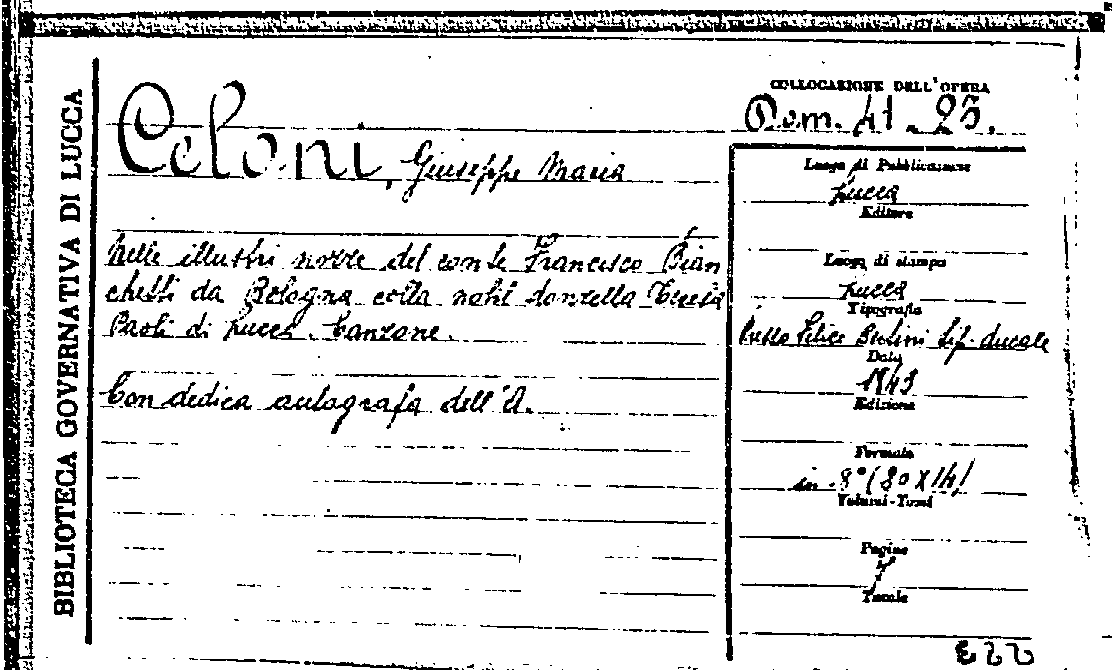 BIBLIOTECA GOVERNATIVA DI LUCCA
COLLOCAZIONE DELL'OPERA
Dom. 41 - 23.
Celoni, Giuseppe Maria
Nelle illustri nozze del conte Francesco Bian
chetti da Bologna colla nobil donzella Teresa
Paoli di Lucca. Canzone.
Con dedica autografa dell'A.
Luogo di Pubblicazione
Lucca
Editore
Luogo di stampa
Lucca
Tipografia
Presso Felice Bertini tip. ducale
Data
1843
Edizione
Formato
in-8° (20 X 14)
Volumi-Tomi
Pagine
Tavole